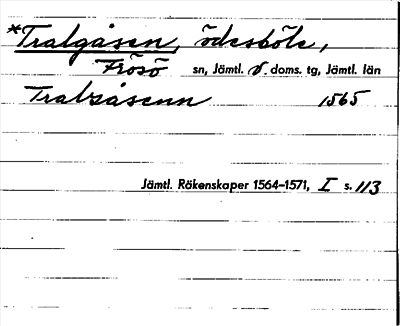 *Tralgåsen, ödesböle,
Frösö sn, Jämtl. v. doms. tg, Jämtl. län
Tralzåsenn 1565
Jämtl. Räkenskaper 1564–1571, I s. 113